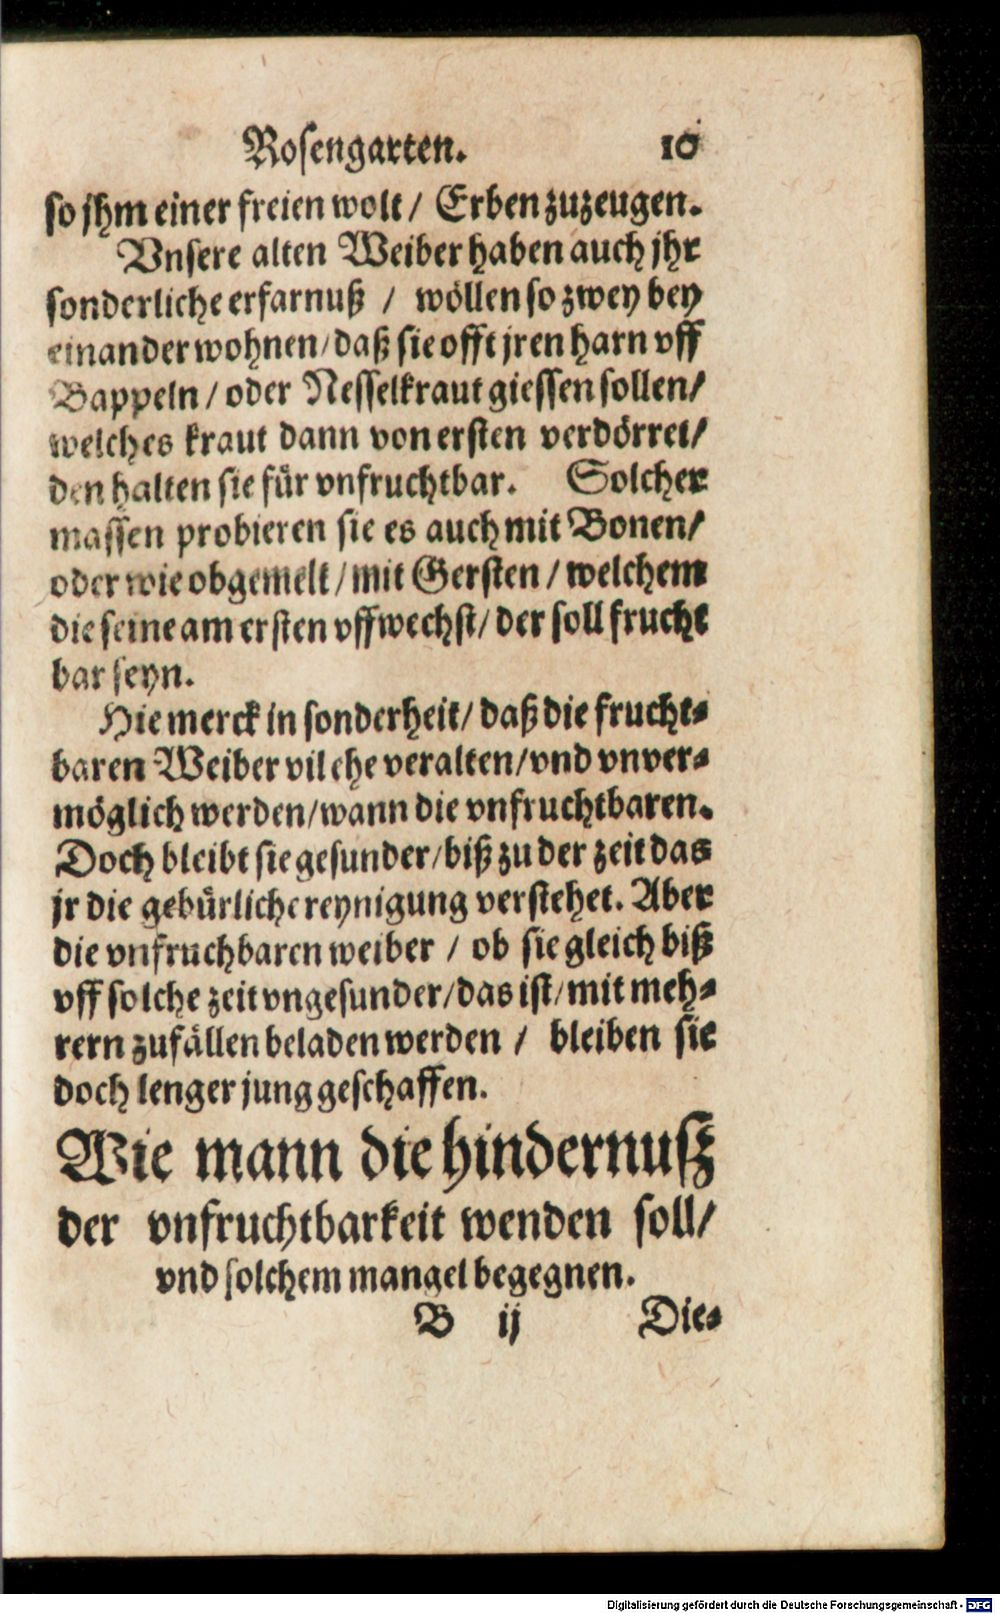 Rosengarten. 10
so jhm einer freien wolt / Erben zuzeugen.
Vnsere alten Weiber haben auch jhr
sonderliche erfarnuß / wöllen so zwey bey
einander wohnen / daß sie offt jren harn vff
Bappeln / oder Nesselkraut giessen sollen /
welches kraut dann von ersten verdörret /
den halten sie für vnfruchtbar. Solcher
massen probieren sie es auch mit Bonen /
oder wie obgemelt / mit Gersten / welchem
die seine am ersten vffwechst / der soll frucht
bar seyn.
Hie merck in sonderheit / daß die frucht⸗
baren Weiber vil ehe veralten / vnd vnver⸗
möglich werden / wann die vnfruchtbaren.
Doch bleibt sie gesunder / biß zu der zeit das
jr die gebürliche reynigung verstehet. Aber
die vnfruchbaren weiber / ob sie gleich biß
vff solche zeit vngesunder / das ist / mit meh⸗
rern zufällen beladen werden / bleiben sie
doch lenger jung geschaffen.
Wie mann die hindernusz
der vnfruchtbarkeit wenden soll /
vnd solchem mangel begegnen.
B ij Die⸗
Digitalisierung gefördert durch die Deutsche Forschungsgemeinschaft - DFG